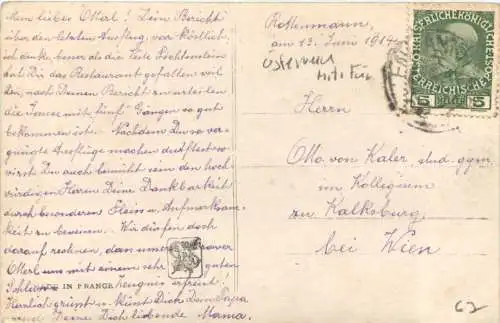 Mein lieber Otterl! Dein Bericht
über den letzten Ausflug, war köstlich,
ich denke, besser als die Feste Liechtenstein
hat Dir das Restaurant gefallen weil
Du, nach Deinem Bericht zu urteilen
die Jause mit fünf Gängen so gut
bekommen ist. Nachdem Du so ver-
gnügte Ausflüge machen durftest so
wirst Du auch bemüht sein den hoch
würdigen Herren Deine Dankbarkeit
durch besonderen Fleiss u. Aufmerksam-
keit zu beweisen. Wir dürfen doch
darauf rechnen, dass unser braver
Otterl uns mit einem sehr guten
Zeugnis erfreut.
MADE IN FRANCE
Herzlich grüsst u. küsst Dich Dein Papa
und Deine Dich liebende Mama.
Rottenmann,
am 13. Juni 1914
Herrn
Otto von Kaler, stud. gym.
im Kollegium
zu Kalksburg
bei Wien
KAISERLICHE KÖNIGLICHE
ÖSTERREICHISCHE POST
5 HELLER 5
62